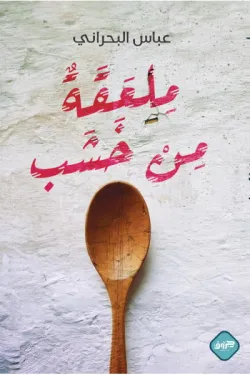 عباس البحراني
مِلعَقَةٌ
مِنْ خَشَب